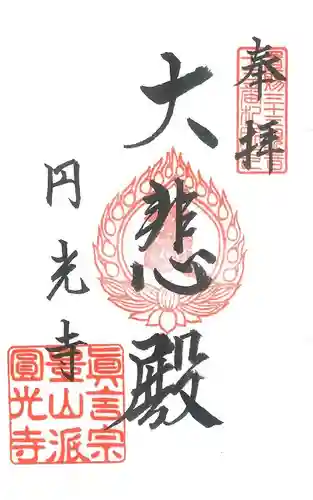 奉拝
大悲殿
円光寺
眞言宗
霊山派
圓光寺